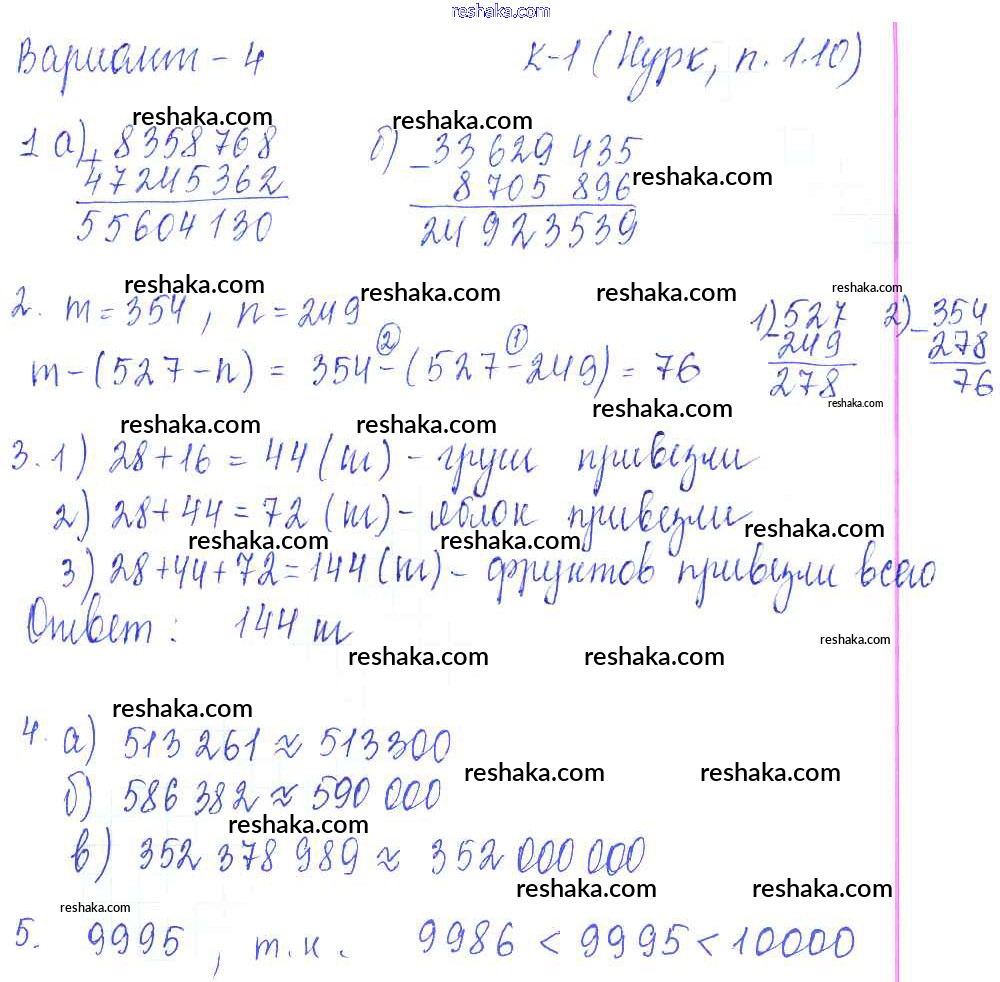 reshaka.com
Вариант - 4 К-1 (Нурк, п. 1.10)
reshaka.com reshaka.com
1 а) + 8358768 б) - 33 629 435
47245362 8 705 896 reshaka.com
55604130 24 923539
reshaka.com reshaka.com reshaka.com reshaka.com
2. m = 354, n = 249 1) - 527 2) - 354
249 278
m - (527 - n) = 354 - (527 - 249) = 76 278 76
2 1
reshaka.com reshaka.com
reshaka.com reshaka.com
3. 1) 28 + 16 = 44 (т) - груш привезли
2) 28 + 44 = 72 (т) - яблок привезли
reshaka.com reshaka.com reshaka.com
3) 28 + 44 + 72 = 144 (т) - фруктов привезли всего
Ответ: 144 т
reshaka.com reshaka.com reshaka.com
reshaka.com
4. а) 513 261 ≈ 513300
reshaka.com reshaka.com
б) 586 382 ≈ 590 000
reshaka.com
в) 352 378 989 ≈ 352 000 000
reshaka.com reshaka.com reshaka.com
5. 9995, т.к. 9986 < 9995 < 10000